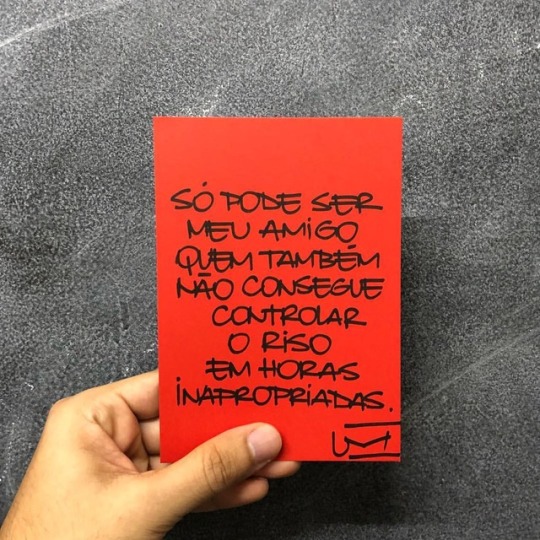 SÓ PODE SER
MEU AMIGO
QUEM TAMBÉM
NÃO CONSEGUE
CONTROLAR
O RISO
EM HORAS
INAPROPRIADAS.